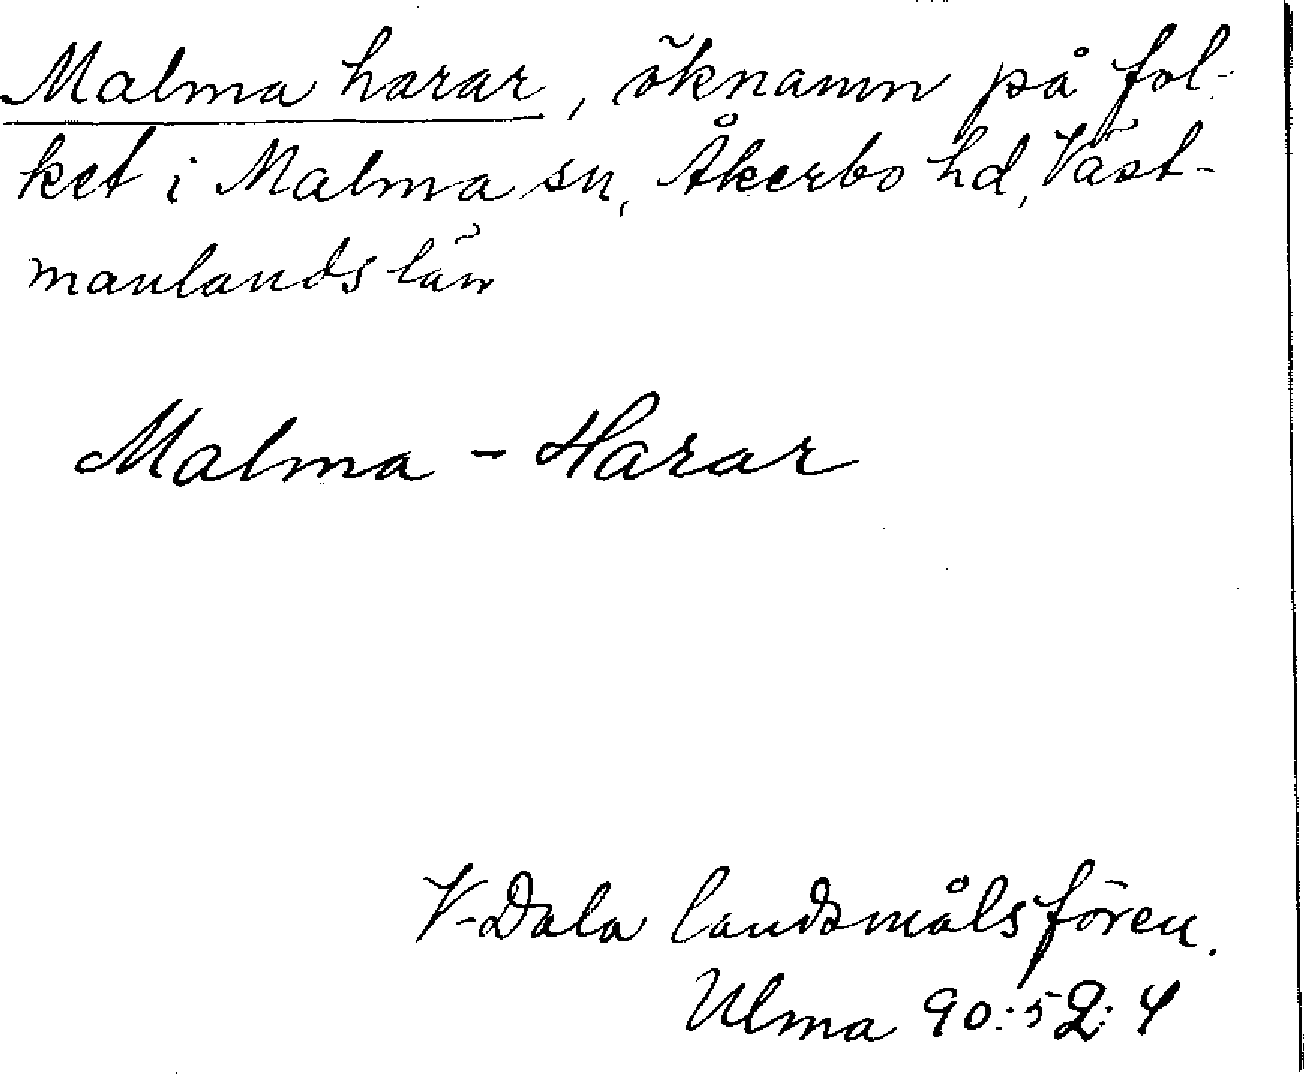 Malma harar, öknamn på fol-
ket i Malma sn, Åkerbo hd, Väst-
manlands län
Malma - Harar
V-Dala landsmålsfören.
Ulma 90:52:4